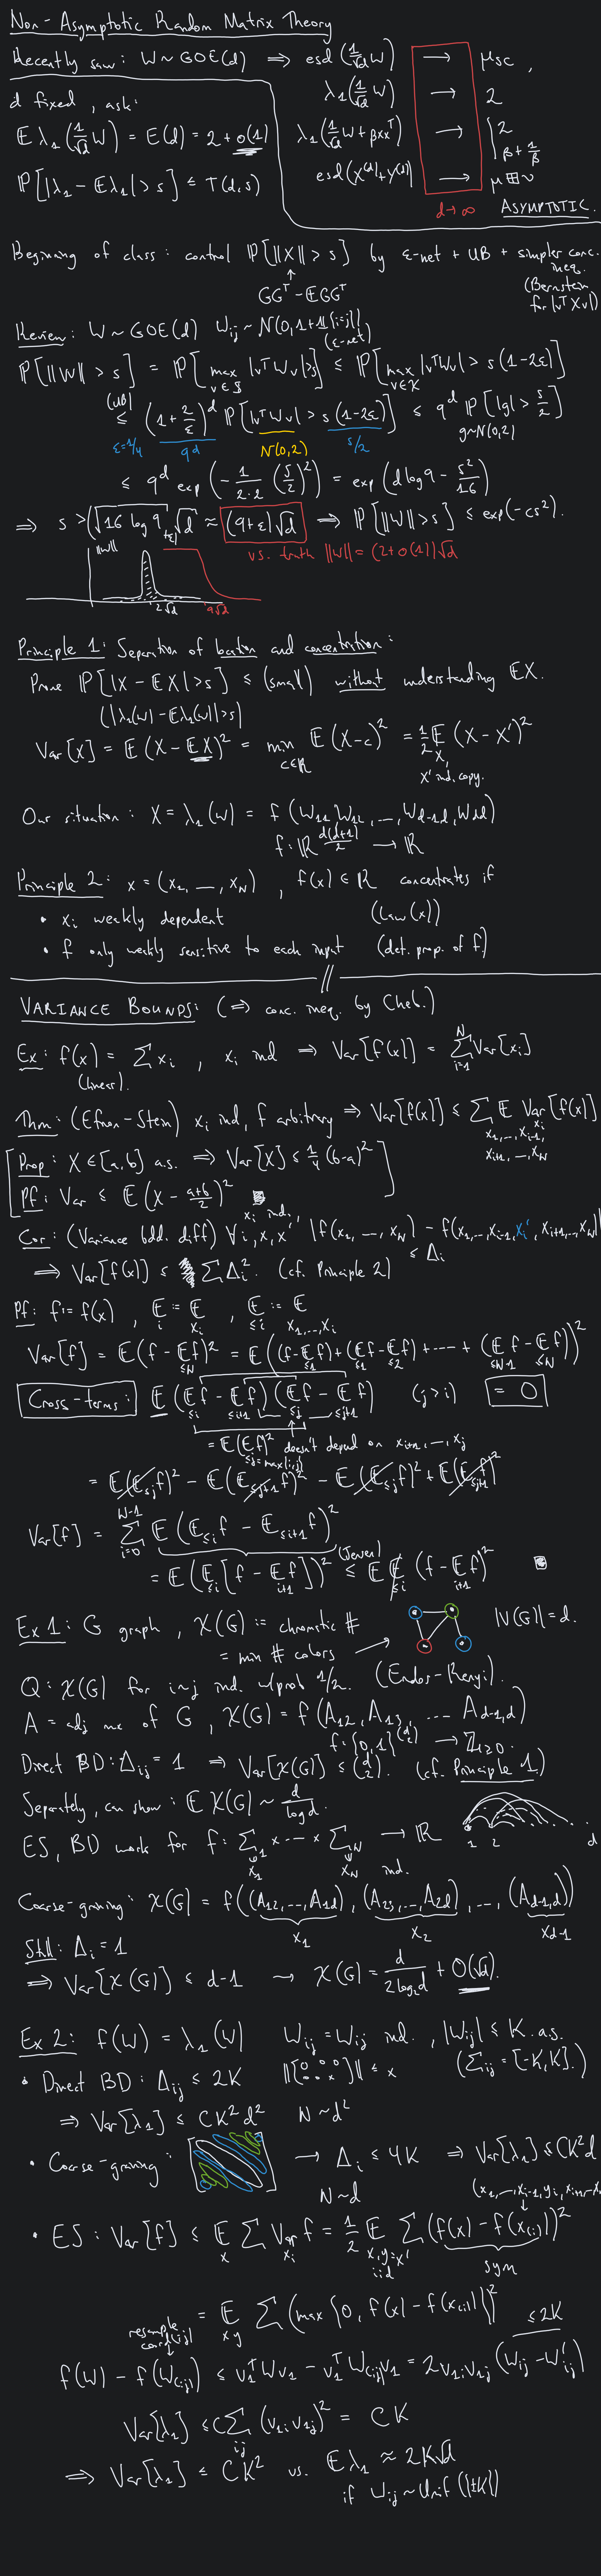 Non-Asymptotic Random Matrix Theory
Recently saw: W ~ GOE(d) ⇒ esd(1/√d W) → μsc,
λ₁(1/√d W) → 2
λ₁(1/√d W + βxxᵀ) → { 2
β + 1/β
esd(X^(d) + Y^(d)) → μ ⊞ ν
d→∞ ASYMPTOTIC.
d fixed, ask:
E λ₁(1/√d W) = E(d) = 2 + o(1)
P[|λ₁ - Eλ₁| > s] ≤ T(d,s)
Beginning of class: control P[||X|| > s] by ε-net + UB + simpler conc. ineq.
↑
GGᵀ - EGGᵀ
(Bernstein for |vᵀXv|)
Review: W ~ GOE(d) Wij ~ N(0, 1+1{i=j})
(ε-net)
P[||W|| > s] = P[max v∈S |vᵀWv| > s] ≤ P[max v∈X |vᵀWv| > s(1-2ε)]
(UB) ≤ (1 + 2/ε)^d P[|vᵀWv| > s(1-2ε)] ≤ 9^d P[|g| > s/2]
ε=1/4 9^d N(0,2) s/2 g~N(0,2)
≤ 9^d exp(-1/(2·2) (s/2)²) = exp(d log 9 - s²/16)
⇒ s > (√(16 log 9) + ε)√d ≈ (9+ε)√d ⇒ P[||W|| > s] ≤ exp(-cs²).
vs. truth ||W|| = (2+o(1))√d
||W||
2√d 9√d
Principle 1: Separation of location and concentration:
Prove P[|X - EX| > s] ≤ (small) without understanding EX.
(|λ₁(W) - Eλ₁(W)| > s)
Var[X] = E(X - EX)² = min c∈R E(X-c)² = 1/2 E (X - X')²
X, X' ind. copy.
Our situation: X = λ₁(W) = f(W11, W12, ..., Wd-1d, Wdd)
f: R^(d(d+1)/2) → R
Principle 2: x = (x₁, —, xN), f(x) ∈ R concentrates if
• xi weakly dependent (Law(x))
• f only weakly sensitive to each input (det. prop. of f)
VARIANCE BOUNDS: (⇒ conc. ineq. by Cheb.)
Ex: f(x) = Σ xi, xi ind ⇒ Var[f(x)] = Σ i=1 N Var[xi]
(linear).
Thm: (Efron-Stein) xi ind, f arbitrary ⇒ Var[f(x)] ≤ Σ E Var xi [f(x)]
x₁,..,xi-1,
xi+1,..,xN
Prop: X ∈ [a,b] a.s. ⇒ Var[X] ≤ 1/4 (b-a)²
Pf: Var ≤ E(X - (a+b)/2)²
xi ind.,
Cor: (Variance bdd. diff) ∀i, x, x', |f(x₁, —, xN) - f(x₁,..,xi-1, xi', xi+1,..,xN)| ≤ Δi
⇒ Var[f(x)] ≤ ΣΔi². (cf. Principle 2)
Pf: f := f(x), E i := E xi, E ≤i := E x₁,..,xi
Var[f] = E(f - E≤N f)² = E((f - E≤1 f) + (E≤1 f - E≤2 f) + ---- + (E≤N-1 f - E≤N f))²
Cross-terms: E(E≤i f - E≤i+1 f)(E≤j f - E≤j+1 f) (j > i) = 0
= E(E f)² ≤j=max{i,j} doesn't depend on xi+1, .., xj
= E(E≤j f)² - E(E≤j+1 f)² - E(E≤j f)² + E(E≤j+1 f)²
Var[f] = Σ i=0 N-1 E(E≤i f - E≤i+1 f)²
= E(E≤i [f - E i+1 f])² ≤ (Jensen) E E≤i (f - E i+1 f)²
Ex 1: G graph, χ(G) := chromatic #
= min # colors → |V(G)| = d.
Q: χ(G) for i~j ind. w/ prob 1/2. (Erdos-Renyi).
A = adj mx of G, χ(G) = f(A12, A13, .... Ad-1,d)
f: {0,1}^(d 2) → Z≥0.
Direct BD: Δij = 1 ⇒ Var[χ(G)] ≤ (d 2). (cf. Principle 1.)
Separately, can show: E χ(G) ~ d/log d.
ES, BD work for f: Σ₁ × ---- × ΣN → R
x₁ xN ind.
1 2 d
Coarse-graining: χ(G) = f((A12, ..., A1d), (A23, ..., A2d), ..., (Ad-1,d))
x₁ x₂ xd-1
Still: Δi = 1
⇒ Var[χ(G)] ≤ d-1 ⇝ χ(G) = d/(2 log₂ d) + O(√d).
Ex 2: f(W) = λ₁(W) Wij = Wij ind., |Wij| ≤ K a.s.
(Σij = [-K,K].)
• Direct BD: Δij ≤ 2K ||[0 0 0 / · · x]|| ≤ x
⇒ Var[λ₁] ≤ CK²d² N~d²
• Coarse-graining: → Δi ≤ 4K ⇒ Var[λ₁] ≤ CK²d
N~d
(x₁, —, xi-1, yi, xi+1, — x
• ES: Var[f] ≤ E x Σ Var xi f = 1/2 E Σ (f(x) - f(x(i)))²
x,y=x' iid sym
= E xy Σ (max{0, f(x) - f(x(i))})²
resample coord (ij) ≤2K
f(W) - f(W(ij)) ≤ v₁ᵀWv₁ - v₁ᵀW(ij)v₁ = 2v₁i v₁j (Wij - W'ij)
Var[λ₁] ≤ C Σ ij (v₁i v₁j)² = CK
⇒ Var[λ₁] ≤ CK² vs. Eλ₁ ≈ 2K√d
if Wij ~ Unif({±K})